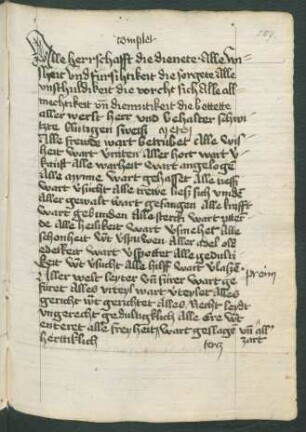 complet
Alle herrschafft die dienete Alle wis
heit vnd fursihtikeit die sorgete Alle
vnschuldikeit die vorcht sich Alle all
mechtikeit vn diemutikeit die bettette
aller werlt herr vnd behalter schwi
tzete blutigen sweiß metẽ
Alle freude wart betrubet Alle wis
heit wart
kunst Alle warheit wart angeloge
Alle mynne wart gehasset Alle
wart vsucht Alle trewe ließ sich vinde
Aller gewalt wart gefangen Alle krafft
wart gebunden Alle sterck wart
de Alle heilikeit wart vsmehet alle
schonheit wt vspuwen aller adel
edelkeit wart vspottet alle gedulti
keit wt vsucht alle hilff wart vlasse
Aller welt leyter vn furer wart ge prim
furet alles vrteyl wart vrteylet alles
gericht wt gerichtet alles recht leydt
vngerecht gedultiglich alle ere wt
enteret alle freyheit wart geslage vn all
hertiklich zart
tertz